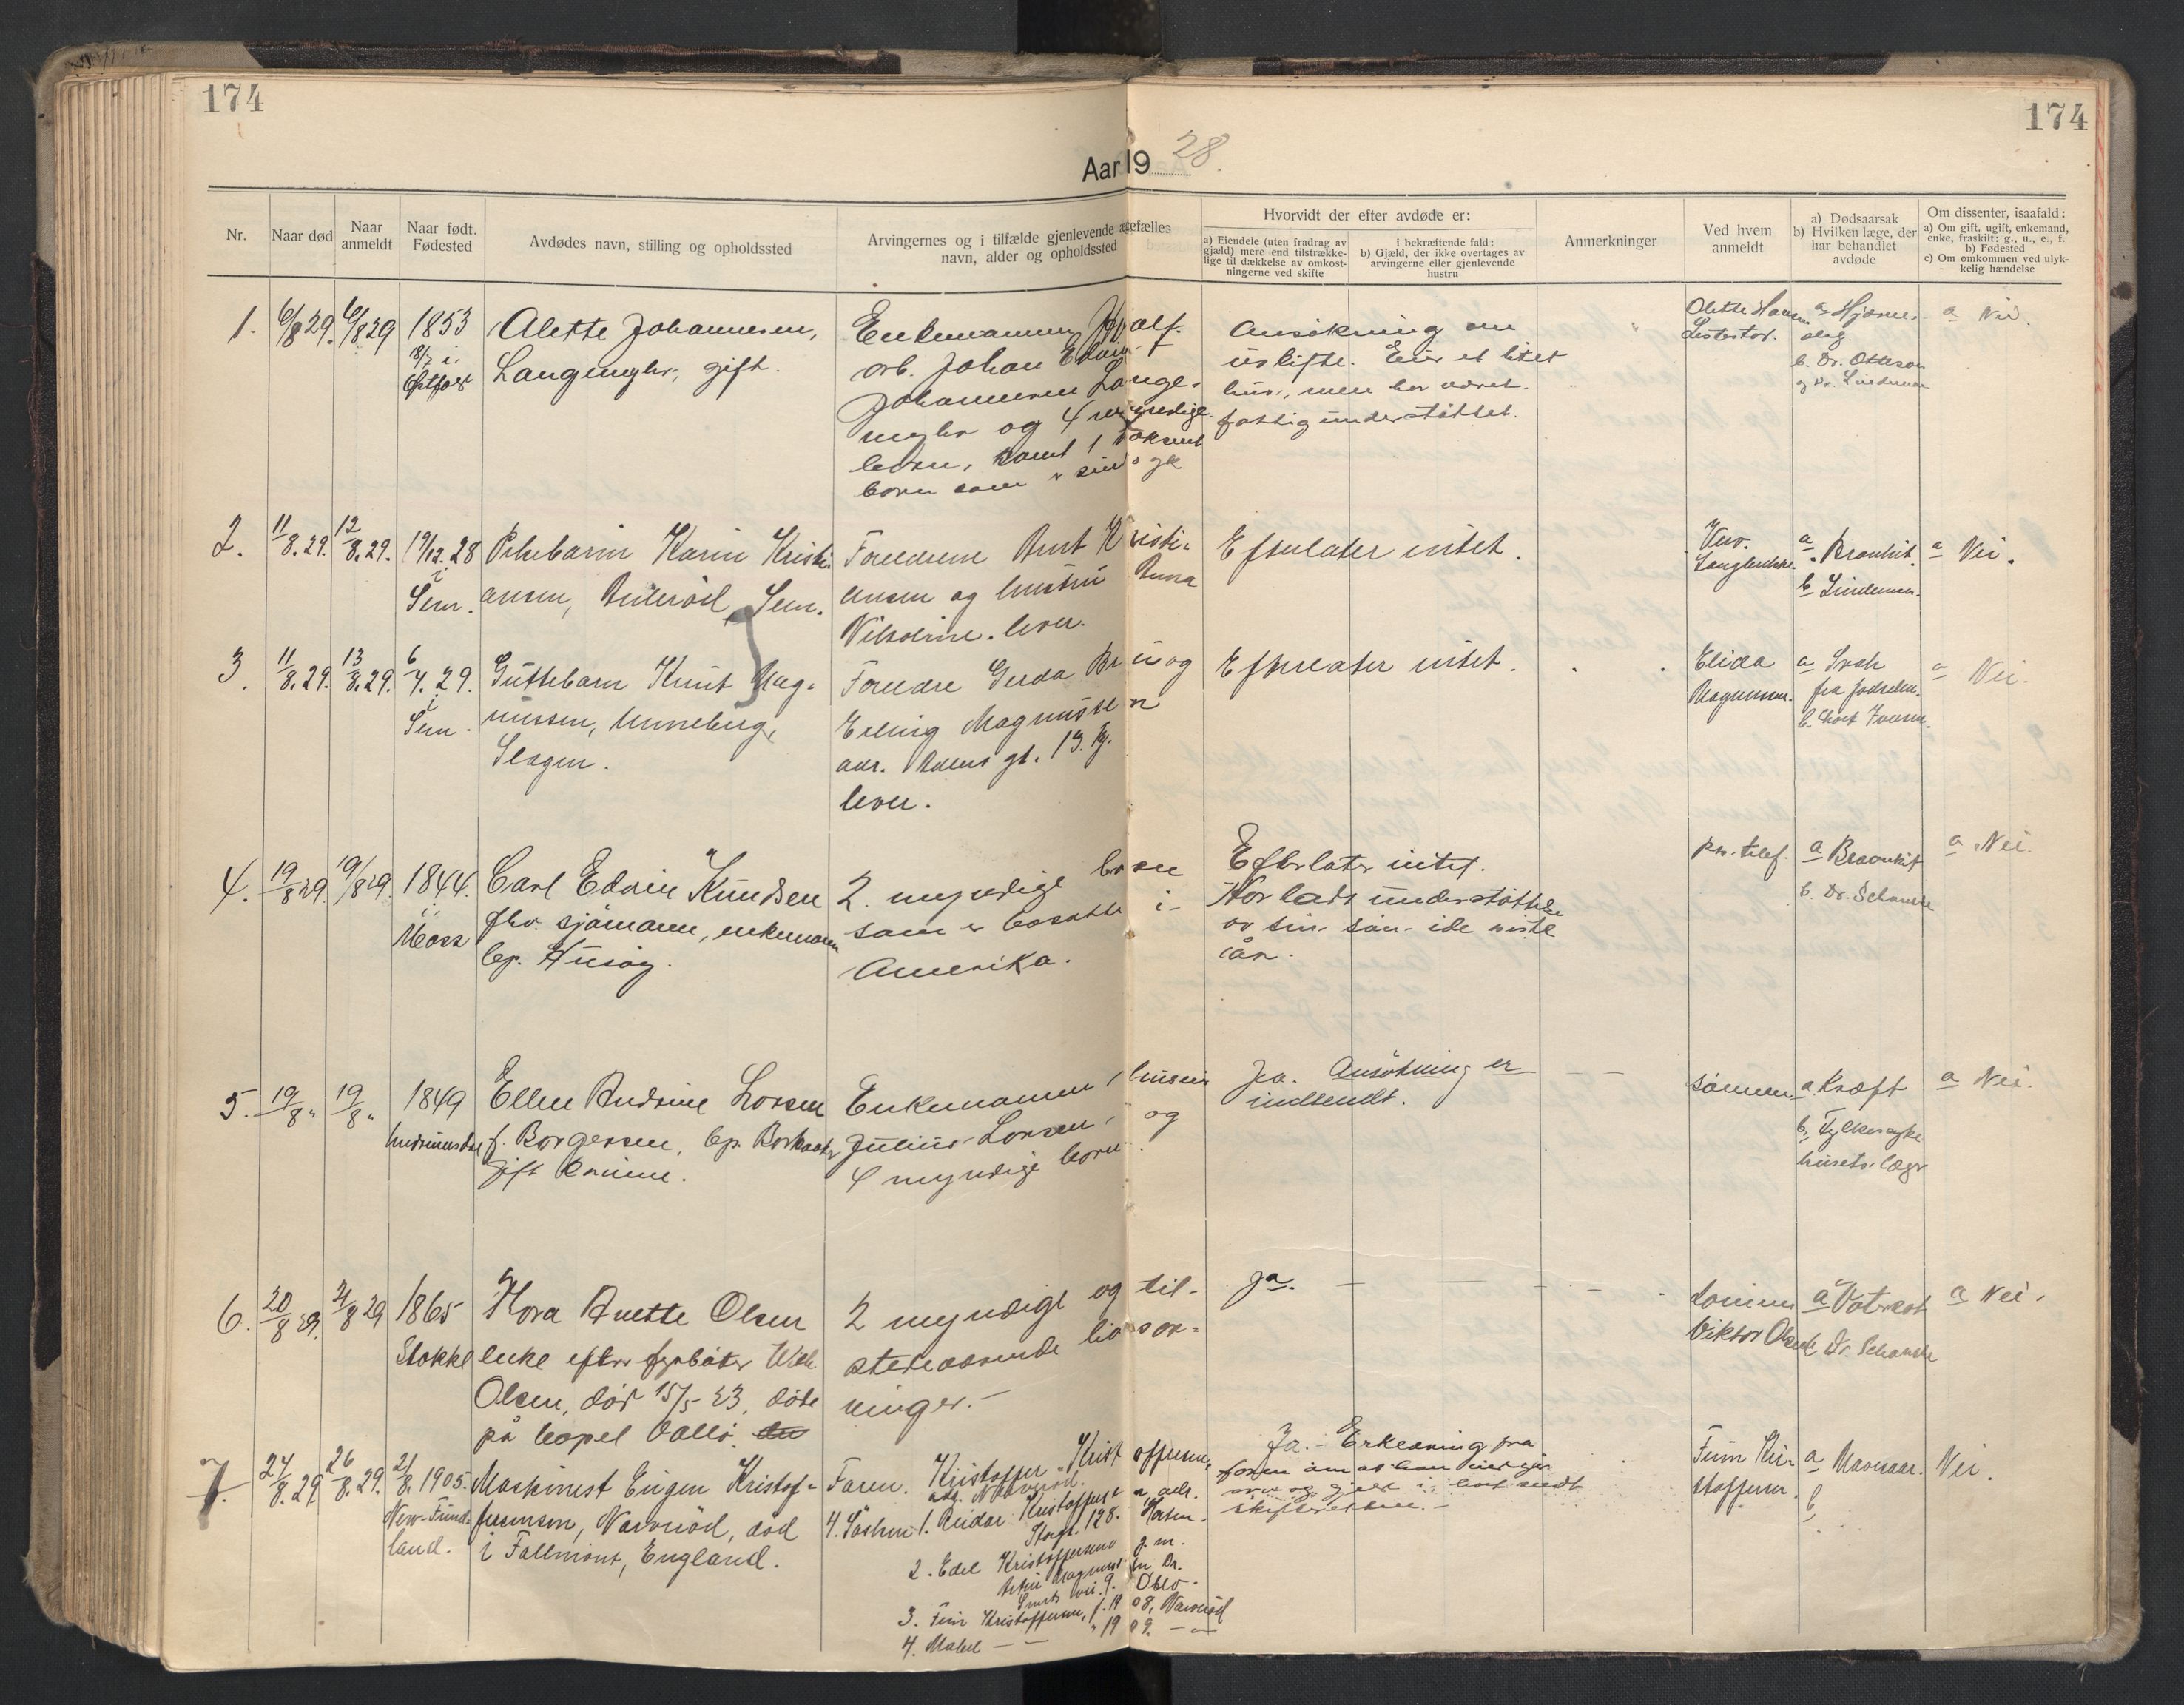 174
174
Aar 19 28.
Nr.
Naar død
Naar anmeldt
Naar født. Fødested
Avdødes navn, stilling og opholdssted
Arvingernes og i tilfælde gjenlevende ægtefælles
navn, alder og opholdssted
Hvorvidt der efter avdøde er:
a) Eiendele (uten fradrag av
gjæld) mere end tilstrække-
lige til dækkelse av omkost-
ningerne ved skifte
i bekræftende fald:
b) Gjæld, der ikke overtages av
arvingerne eller gjenlevende
hustru
Anmerkninger
Ved hvem
anmeldt
a) Dødsaarsak
b) Hvilken læge, der
har behandlet
avdøde
Om dissenter, isaafald:
a) Om gift, ugift, enkemand,
enke, fraskilt: g., u., e., f.
b) Fødested
c) Om omkommen ved ulyk-
kelig hændelse
1.
6/8 29.
6/8 29
1853
18/3 i
Østfold
Alette Johannesen,
gift.
Enkemannen
arb. Johan Edvin
Johannesen Lange-
og 4 myndige
barn, samt 1 voksent
barn som er
Ansökning om
uskifte. Eier et litet
hus, men har været
fattigunderstöttet.
Olette Hansen
a Hjerne-
slag
b. Dr. Ottesen
og Dr. Lindeman
a Nei.
2.
11/8.29.
12/8.29.
19/12.28
i
Sem.
Pikebarn Karin Kristi-
ansen, Sem.
Foreldrene Arnt Kristi-
ansen og hustru Anna
Nikoline. lever.
Efterlater intet.
a. Bronkit.
b Lindeman.
a Nei.
3.
11/8.29.
13/8.29.
6/4.29.
i
Sem.
Guttebarn Knut Mag-
nussen, Unneberg,
Slagen.
Foreldre Gerda Bruu og
Erling Magnussen
adr.
lever.
Efterlater intet.
Elida
Magnussen.
a Svak
fra födselen.
a Nei.
4.
19/8 29.
19/8 29.
1844.
i
Moss
Carl Edvin Knudsen
fhv. sjömann, enkemann
bp. Husöy.
2 myndige barn
som er bosatte i
Amerika.
Efterlater intet.
Har hatt understöttelse
av sin sön i de siste
år.
pr. telef.
a Bronkit
b. Dr. Schanche
a Nei.
5.
19/8 "
19/8 "
1849
Ellen Andrine Larsen
f. Borgersen, bp.
gift kvinne.
Enkemannen
Julius Larsen, og
4 myndige barn.
Ja. Ansökning er
indsendt.
— —
Sönnen
a Kræft
b. Fylkessyke
husets læge
a Nei.
6.
20/8 29.
21/8 29
1865
Stokke
Anette Olsen
enke efter fyrböter Wilh.
Olsen, död 15/5-23, döde
på kapel Vallö.
2 myndige og til-
stedeværende livsar-
vinger.-
Ja. — — —
Sönnen
Viktor Olsen
a Vatersot
b Dr. Schanche
a Nei.
7.
24/8.29.
26/8.29.
21/8.1905.
New-Fund-
land.
Maskinist Eugen Kristof-
fersen, Narveröd, död
i Fallmont, England.
Faren. Kristoffer Kristoffersen,
adr. Narveröd.
4 Sösken 1. Reidar Kristoffersen, adr.
Storgt. 128. Horten.
2. Edel Kristoffersen g. m.
9. Oslo.
3. Finn Kristoffersen, f. 1908, Narveröd
4. Mabel — — " 1909. — —
Ja. - Erklæring fra
faren om at han
arv og gjeld i boet sendt
skifteretten.-
Finn Kri-
stoffersen.
a
b
Nei.